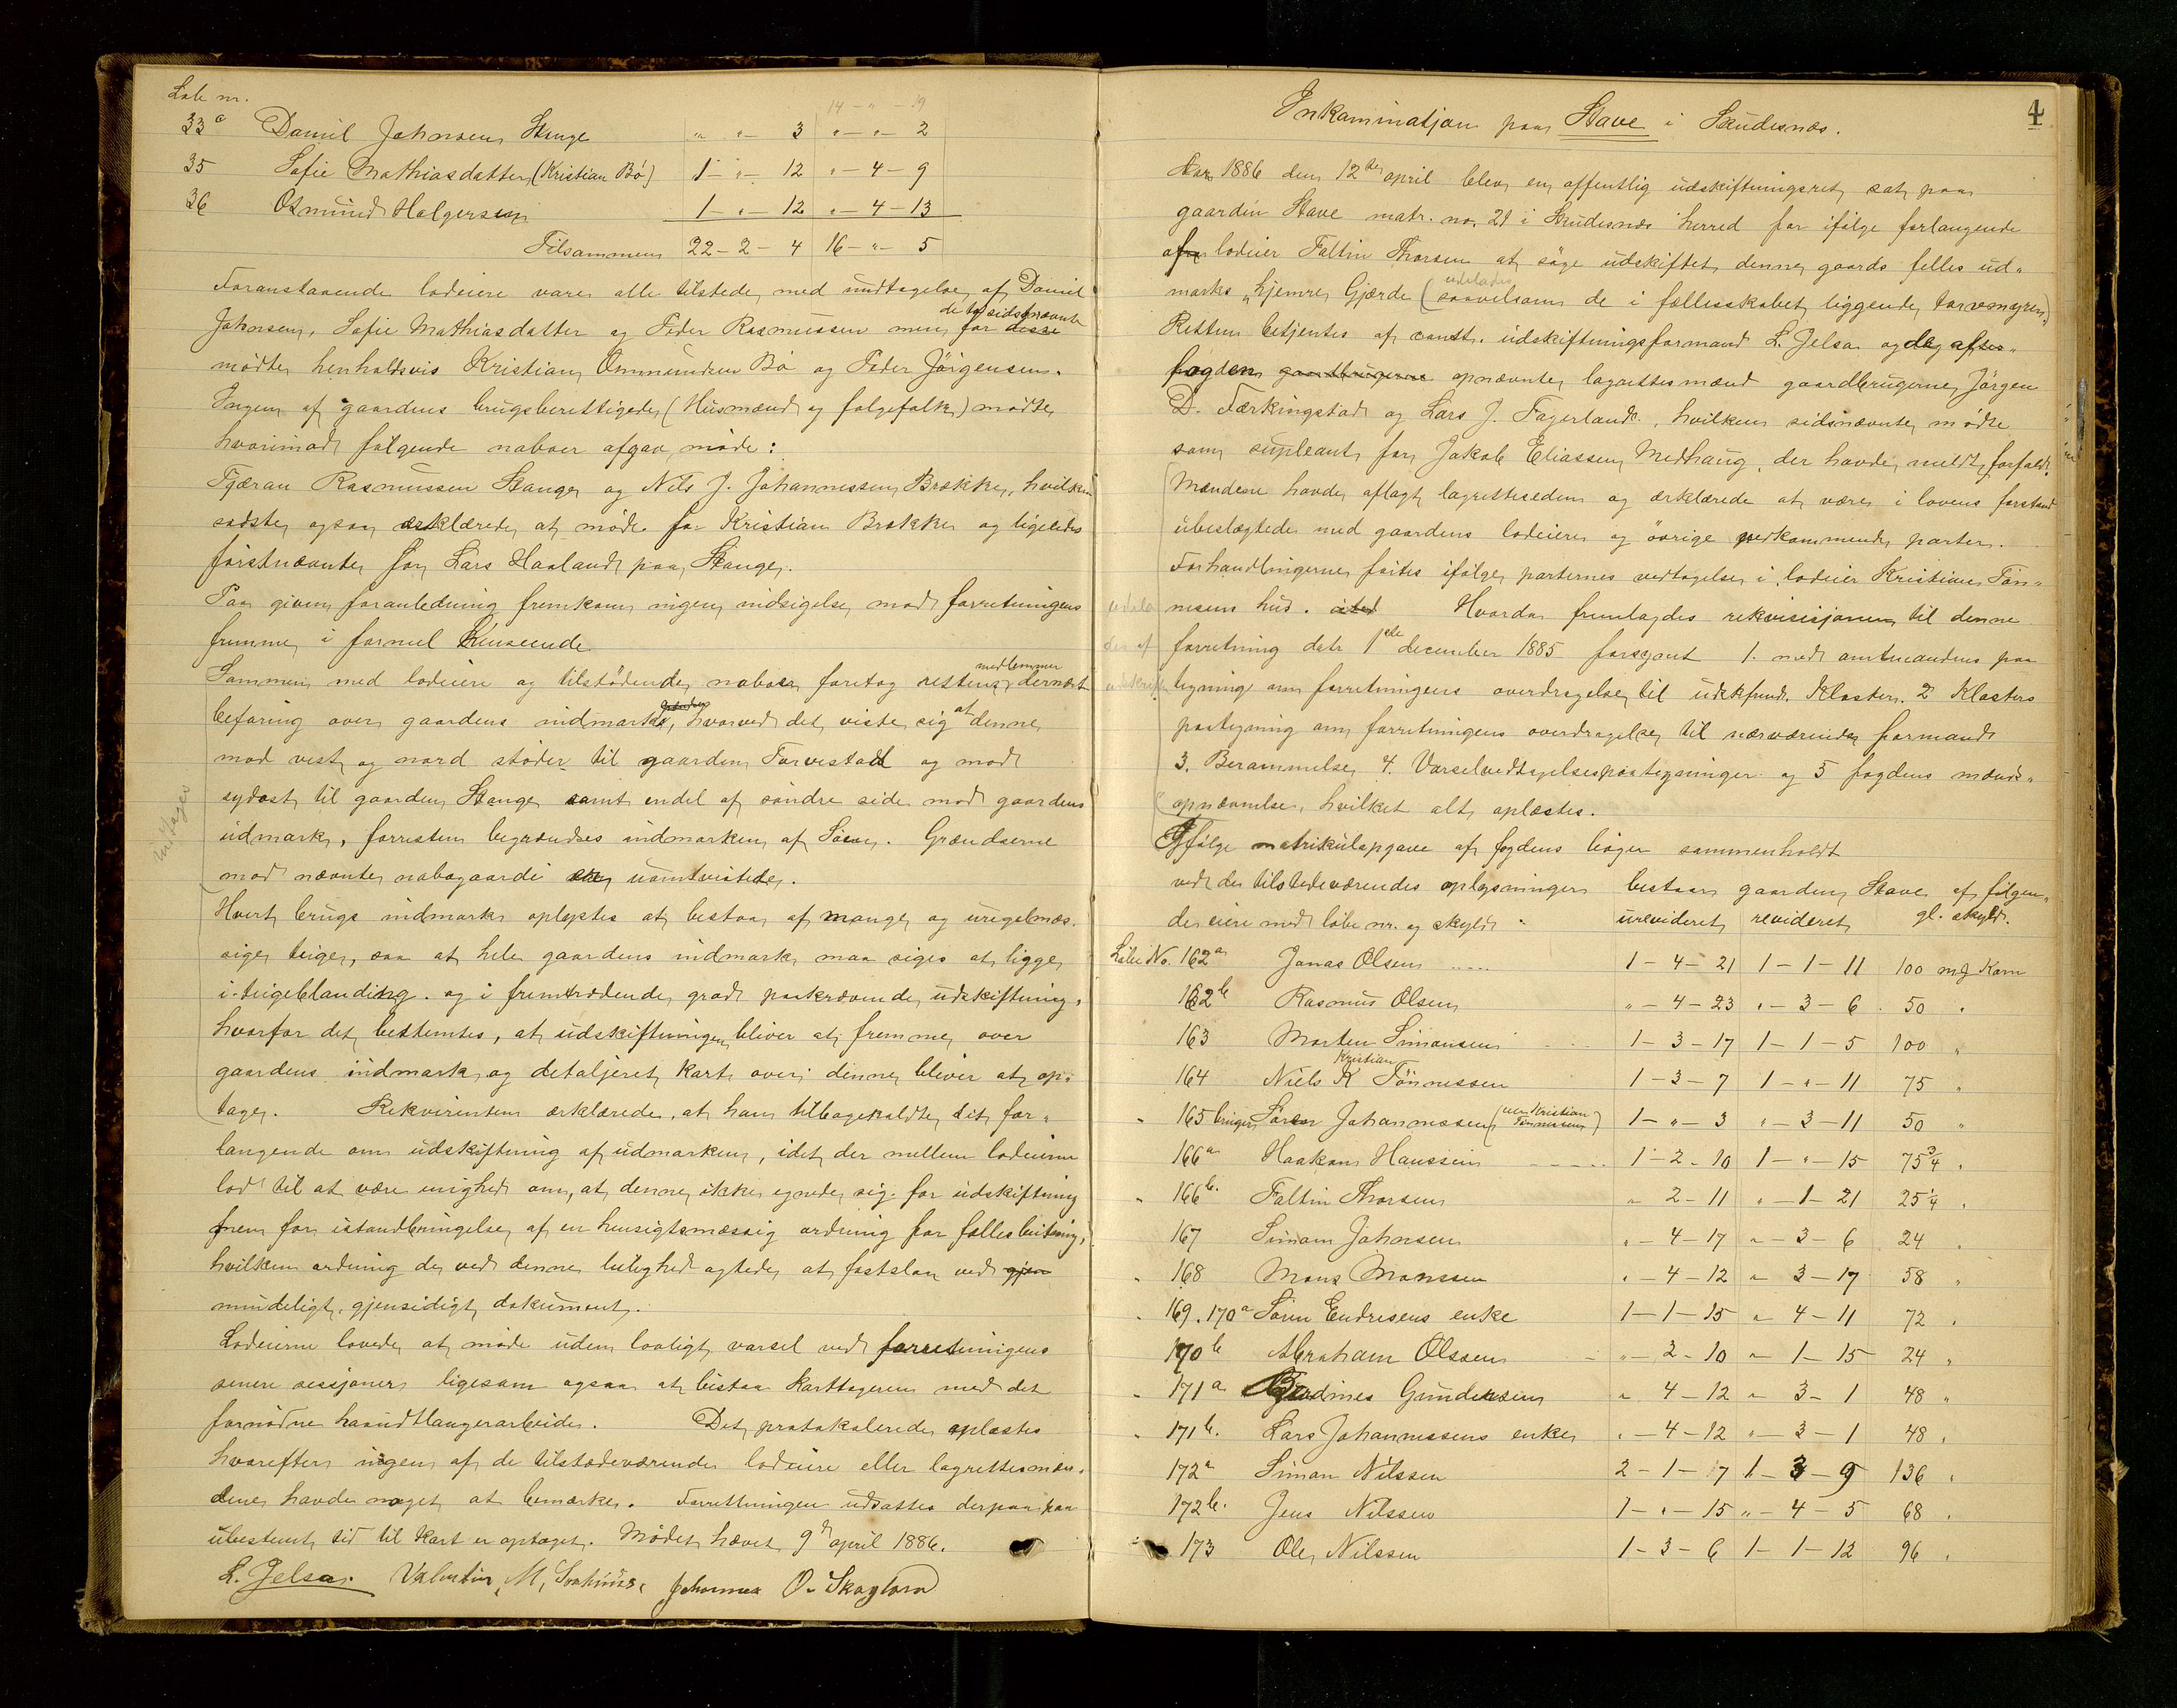 Løb nr.
14 - " - 19
33 c Daniel Johnsen Stange " " 3 " - " - 2
35 Sofie Mathiasdatter (Kristian Bö) 1 - " - 12 " - 4 - 9
36 Osmund Holgersen 1 - " - 12 " - 4 - 13
Tilsammen 22 - 2 - 4 16 - " - 5
Foranstaaende lodeiere vare alle tilstede med undtagelse af Daniel
Johnsen, Sofie Mathiasdatter og Peder Rasmussen men for disse de to sidstnævnte
mødte henholdsvis Kristian Ommundsen Bö og Peder Jörgensen.
Ingen af gaardens brugsberettigede (Husmænd og folgefolk) mødte,
hvorimod følgende naboer afgav møde:
Tjæran Rasmussen Stange og Nils J. Johannessen Brekke, hvilken
sidste ogsaa erklærede at møde for Kristian Brekke og ligeledes
förstnævnte for Lars Haaland paa Stange.
Paa given foranledning fremkom ingen indsigelse mod forretningens
fremme i formel henseende.
Sammen med lodeiere og tilstödende naboer foretog rettens medlemmer dernæst
befaring over gaardens indmark, hvorved det viste sig at denne
mod vest og nord støder til gaarden Torvestad og mod
sydost til gaarden Stange samt endel af söndre side mod gaardens
udmark, forresten begrændses indmarken af Söen. Grændserne
mod nævnte nabogaarde er uomtvistede.
Hvert brugs indmark oplystes at bestaa af mange og uregelmæs-
sige teiger, saa at hele gaardens indmark maa siges at ligge
i teigeblanding og i fremtrædende grad paakrævende udskiftning,
hvorfor det bestemtes, at udskiftningen bliver at fremme over
gaardens indmark og detaljeret kart over denne bliver at op-
tage. Rekvirenten erklærede, at han tilbagekaldte sit for-
langende om udskiftning af udmarken, idet der mellem lodeierne
lod til at være enighed om, at denne ikke egnede sig for udskiftning
men for istandbringelse af en hensigtsmæssig ordning for fælles beitning,
hvilken ordning de ved denne leilighed agtede at fastslaa ved gjen
mindeligt, gjensidigt dokument.
Lodeierne lovede at møde uden lovligt varsel ved forretningens
senere sessjoner ligesom ogsaa at bistaa karttageren med det
fornødne haandtlangerarbeide. Det protokolerede oplæstes
hvorefter ingen af de tilstedeværende lodeiere eller lagrettesmæn-
dene havde noget at bemærke. Forretningen udsattes derpaa paa
ubestemt tid til kart er optaget. Mødet hævet 9de april 1886.
L. Jelsa. Valentin M. Johannes O. Skogland
indtages
4
Inkaminatjon paa Stave i Skudesnæs.
Aar 1886 den 12te april blev en offentlig udskiftningsret sat paa
gaarden Stave matr. no. 21 i Skudesnæs herred for ifölge forlangende
af fra lodeier Faltin Thorsen at söge udskiftet denne gaards felles ud-
marks "hjemre Gjærde (saavelsom de i fællesskabet liggende torvemyrer)
udelades
Retten betjentes af const. udskiftningsformand L. Jelsa og de af
fogden gaardbrugerne opnævnte lagrettesmænd gaardbrugerne Jörgen
D. Færkingstad og Lars J. Fagerland, hvilken sidsnævnte mødte
som supleant for Jakob Eliassen Medhaug, der havde meldt forfald.
Mændene havde aflagt lagretteseden og erklærede at være i lovens forstand
ubeslægtede med gaardens lodeiere og övrige vedkommende parter.
Forhandlingerne førtes ifölge parternes vedtagelse i lodeier Kristian Tön-
nesens hus. Hvorda fremlagdes rekvisisjonen til denne
forretning datr 1ste december 1885 forsynt 1. med amtmandens paa
tegning om forretningens overdragelse til udskfmd. Kloster. 2 Klosters
paategning om forretningens overdragelse til nærværende formand
3. Berammelse 4. Varselvedtagelsespaategninger og 5 fogdens mænds-
opnævnelse, hvilket alt oplæstes.
udela
des af
udskrift
Ifölge matrikülopgave af fogdens böger sammenholdt
ved de tilstedeværendes oplysninger bestaar gaarden Stave af fölgen-
de eiere med löbe nr. og skyld: urevideret revideret gl. skyld.
Löbe No. 162 a Jonas Olsen 1 - 4 - 21 1 - 1 - 11 100 mg Korn
162 b Rasmus Olsen " - 4 - 23 " - 3 - 6 50 "
163 Morten Simonsen 1 - 3 - 17 1 - 1 - 5 100 "
164 Niels K Kristian Tönnessen 1 - 3 - 7 1 - " - 11 75 "
" 165 bruger Sören Johannessen (nu Kristian Tönnesen) 1 - " - 3 " - 3 - 11 50 "
166 a Haakon Hanssen 1 - 2 - 10 1 - " - 15 75 3/4 "
" 166 b. Faltin Thorsen " 2 - 11 " - 1 - 21 25 1/4 "
167 Simon Johnsen " - 4 - 17 " - 3 - 6 24 "
" 168 Mons Monssen " - 4 - 12 " 3 - 17 58 "
" 169. 170 a Sören Endresens enke 1 - 1 - 15 " 4 - 11 72 "
170 b Abraham Olssen " - 2 - 10 " 1 - 15 24 "
" 171 a Gundersen " 4 - 12 " 3 - 1 48 "
" 171 b. Lars Johannessens enke " - 4 - 12 " - 3 - 1 48 "
172 a Simon Nilssen 2 - 1 - 17 1 - 3 - 9 136 "
172 b. Jens Nilssen 1 - " - 15 " - 4 - 5 68 "
" 173 Ole Nilssen 1 - 3 - 6 1 - 1 - 12 96 "